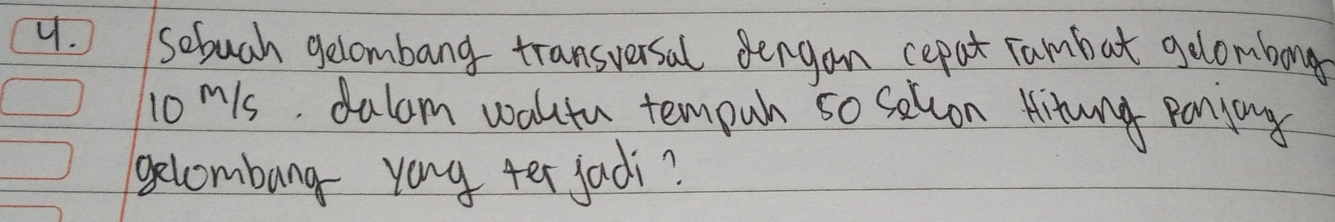 4. Sebuah gelombang transversal dengan cepat rambat gelombang
10 m/s. dalam waktu tempuh 50 sekon Hitung panjang
gelombang yang terjadi?